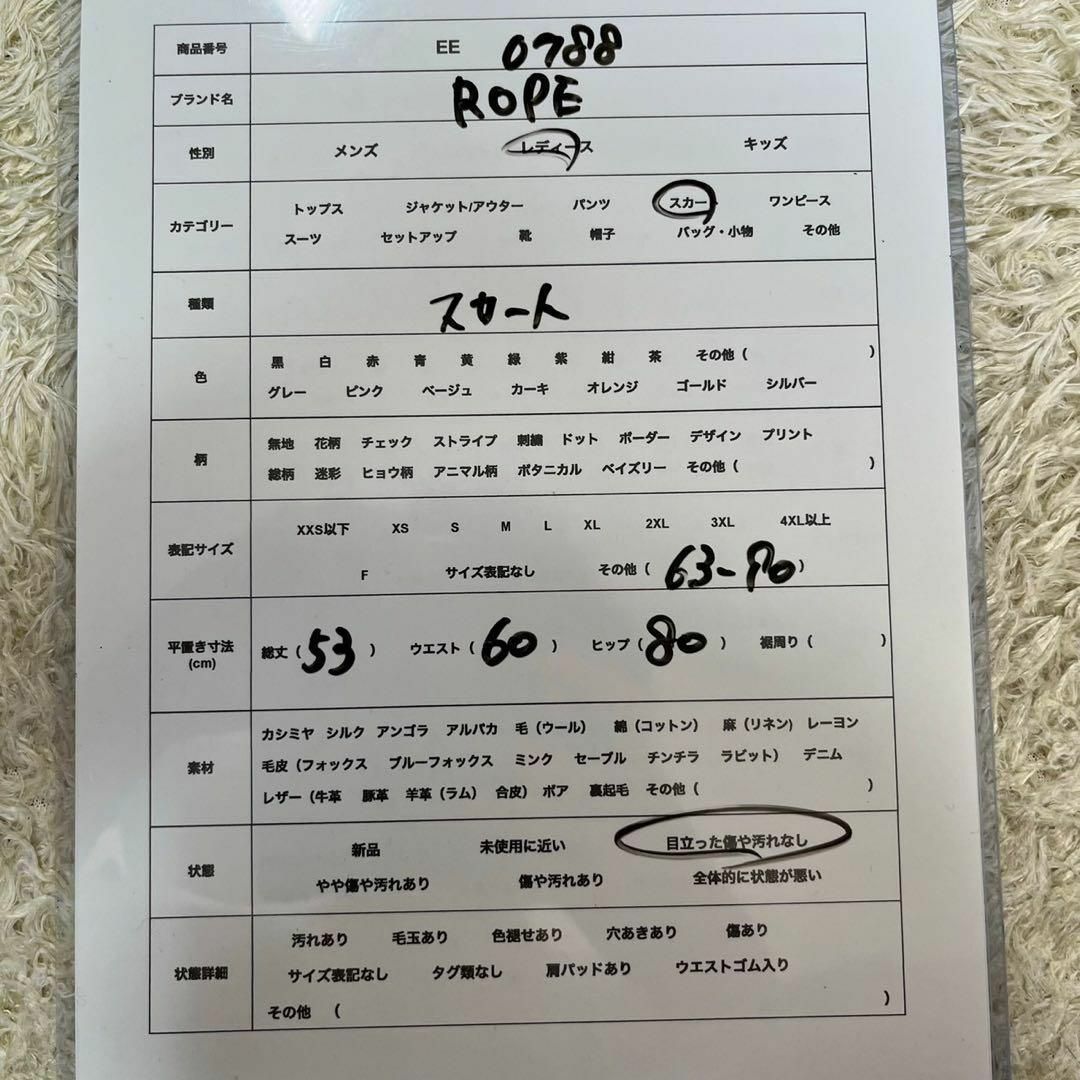 商品番号 EE 0788
ブランド名 ROPE
性別 メンズ レディース キッズ
カテゴリー
トップス ジャケット/アウター パンツ スカー ワンピース
スーツ セットアップ 靴 帽子 バッグ・小物 その他
種類 スカート
色
黒 白 赤 青 黄 緑 紫 紺 茶 その他 ( )
グレー ピンク ベージュ カーキ オレンジ ゴールド シルバー
柄
無地 花柄 チェック ストライプ 刺繍 ドット ボーダー デザイン プリント
総柄 迷彩 ヒョウ柄 アニマル柄 ボタニカル ペイズリー その他 ( )
表記サイズ
XXS以下 XS S M L XL 2XL 3XL 4XL以上
F サイズ表記なし その他 ( 63-90 )
平置き寸法
(cm)
総丈 ( 53 ) ウエスト ( 60 ) ヒップ ( 80 ) 裾周り ( )
素材
カシミヤ シルク アンゴラ アルパカ 毛 (ウール) 綿 (コットン) 麻 (リネン) レーヨン
毛皮 (フォックス ブルーフォックス ミンク セーブル チンチラ ラビット) デニム
レザー (牛革 豚革 羊革 (ラム) 合皮) ボア 裏起毛 その他 ( )
状態
新品 未使用に近い 目立った傷や汚れなし
やや傷や汚れあり 傷や汚れあり 全体的に状態が悪い
状態詳細
汚れあり 毛玉あり 色褪せあり 穴あきあり 傷あり
サイズ表記なし タグ類なし 肩パッドあり ウエストゴム入り
その他 ( )